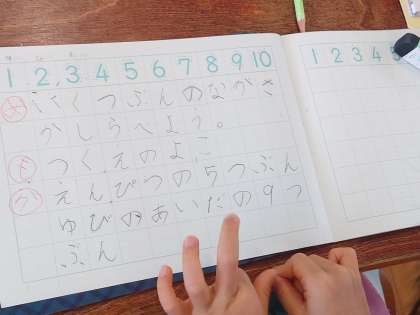 1 2 3 4 5 6 7 8 9 10
め いくつぶんのながさ
かしらべよう。
つくえのよこ
えんぴつの5つぶん
ゆびのあいだの9つ
ぶん
1 2 3 4